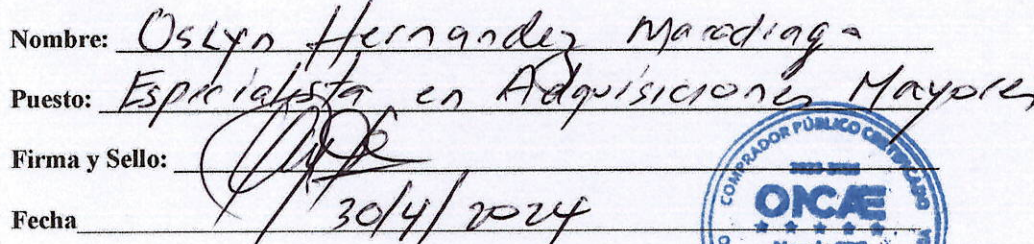 Nombre: Oslyn Hernandez Maradiaga
Puesto: Especialista en Adquisiciones Mayores
Firma y Sello:
COMPRADOR PÚBLICO CERTIFICADO
ONCAE
Fecha 30/4/2024